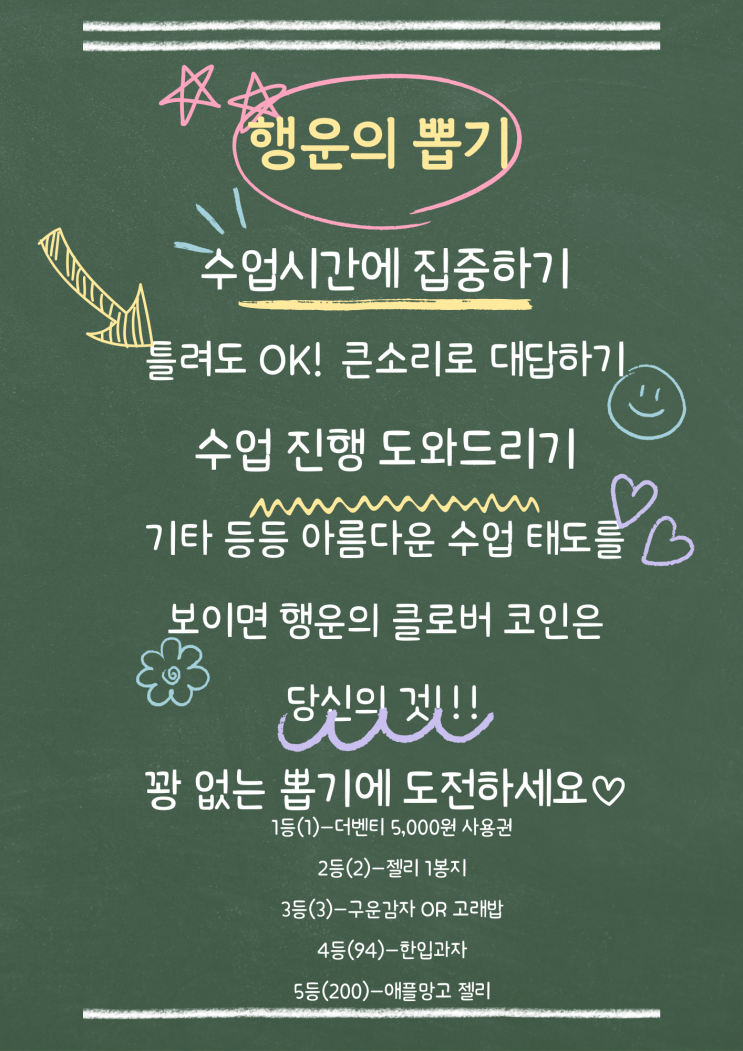 행운의 뽑기
수업시간에 집중하기
틀려도 OK! 큰소리로 대답하기
수업 진행 도와드리기
기타 등등 아름다운 수업 태도를
보이면 행운의 클로버 코인은
당신의 것!!!
꽝 없는 뽑기에 도전하세요♡
1등(1)-더벤티 5,000원 사용권
2등(2)-젤리 1봉지
3등(3)-구운감자 OR 고래밥
4등(94)-한입과자
5등(200)-애플망고 젤리